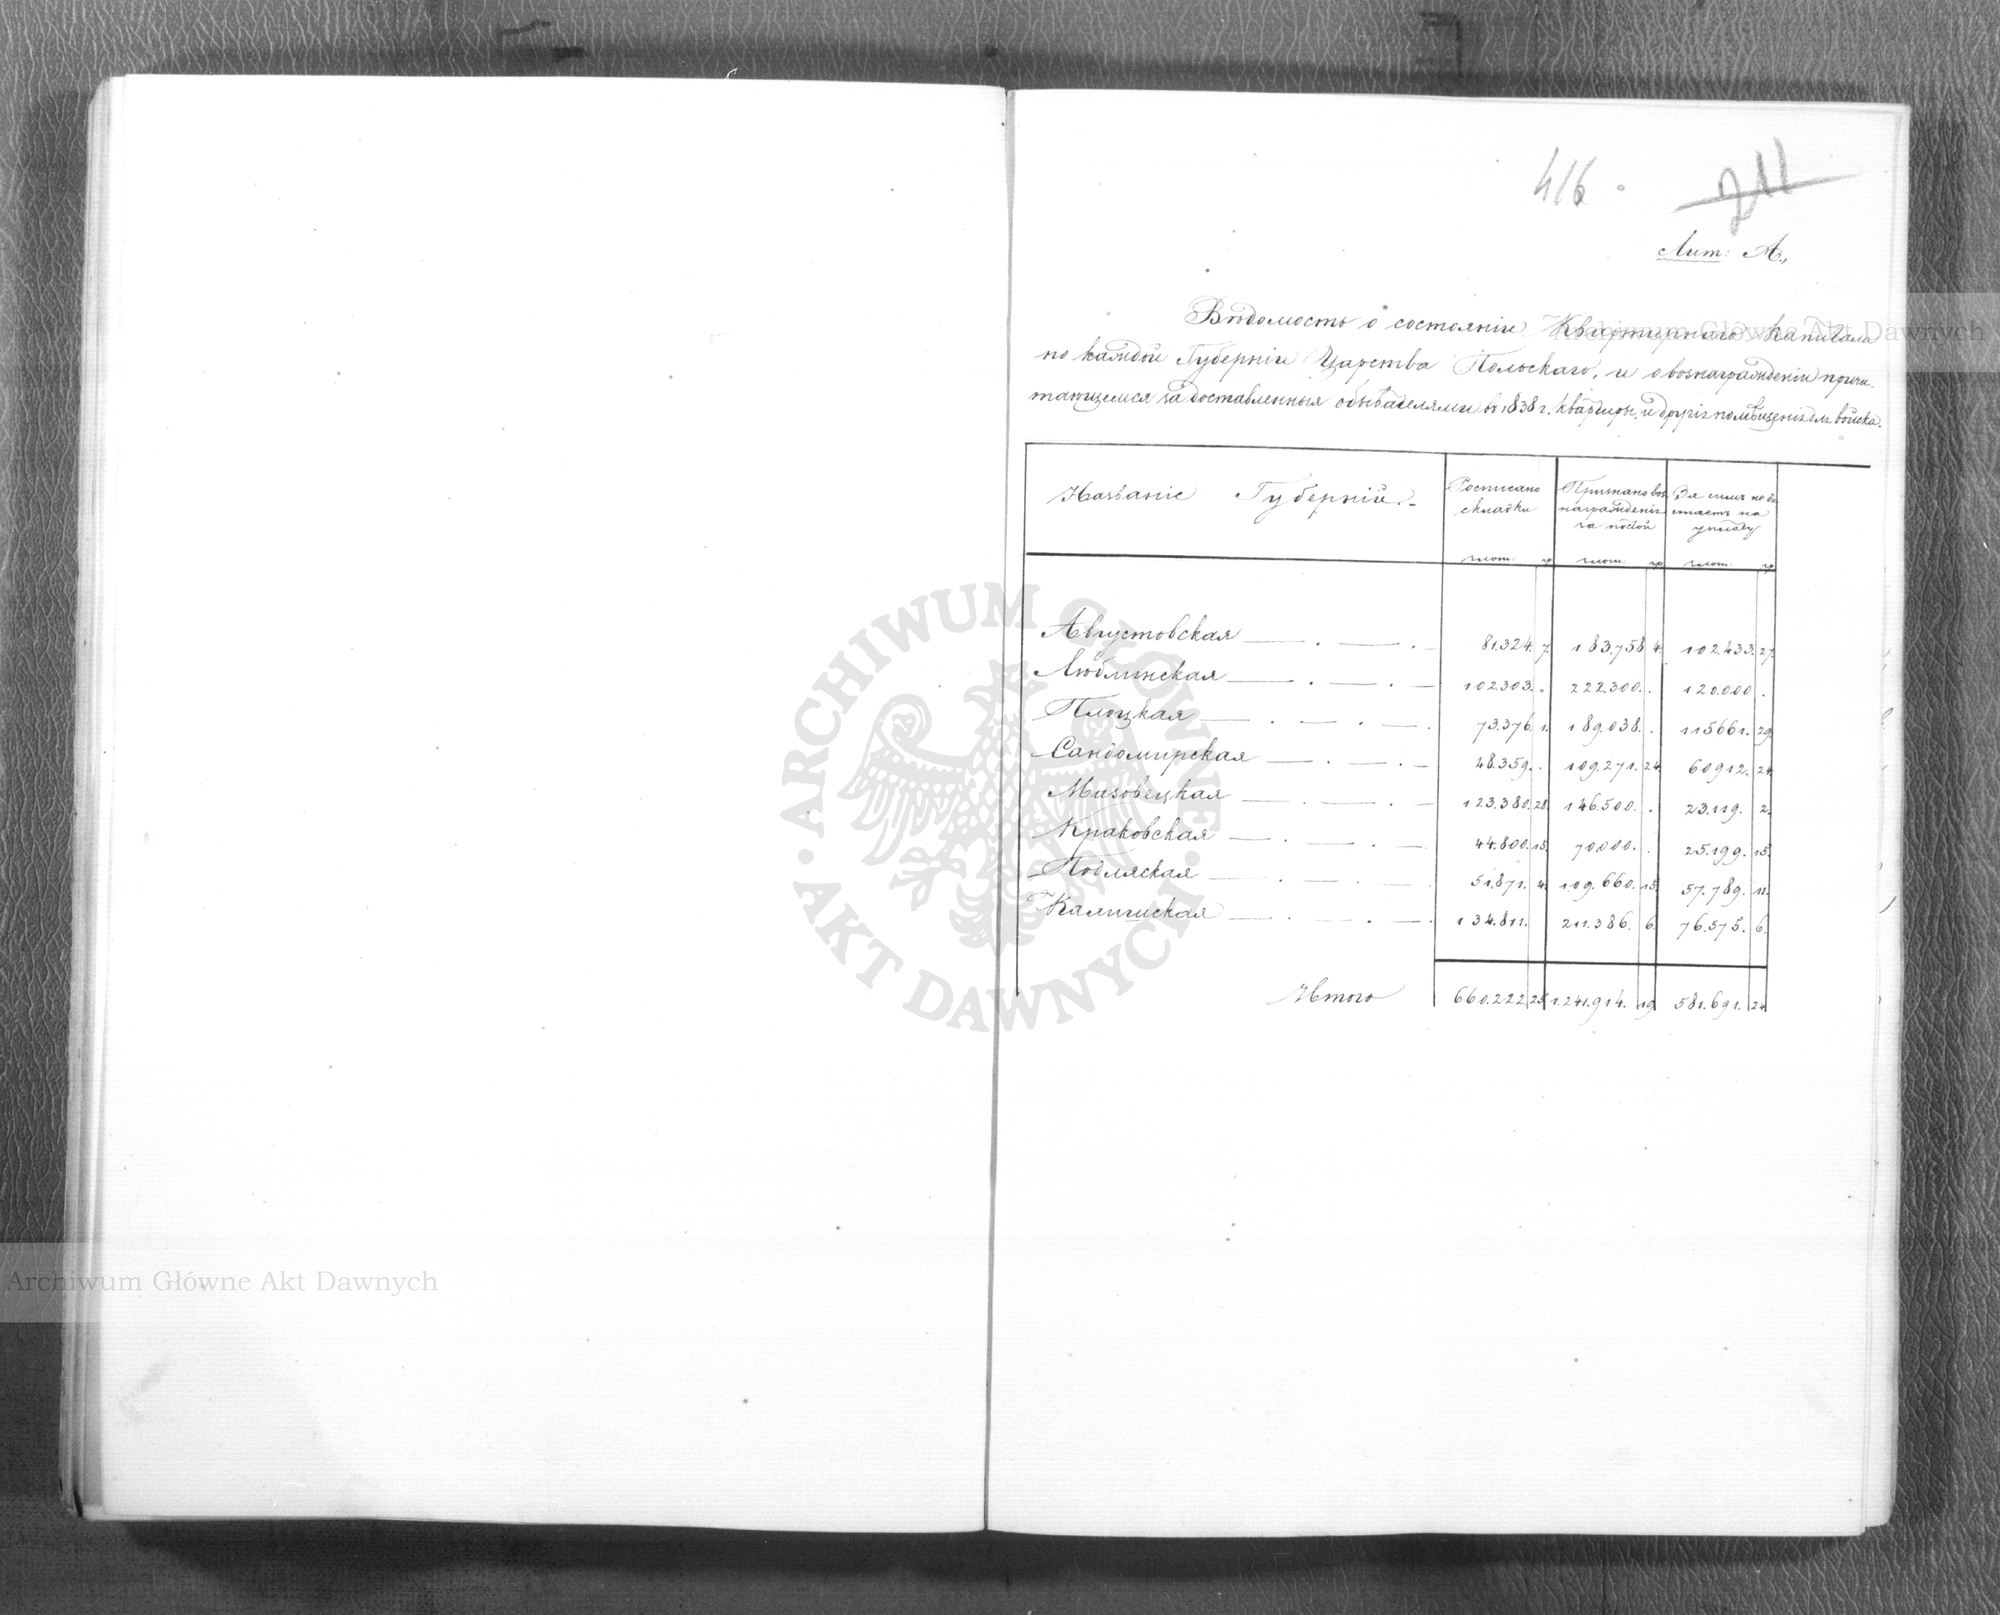 416.
211
Лит: А.,
Вѣдомость о состояніи Квартирнаго капитала
по каждой Губерніи Царства Польскаго, и о вознагражденіи причи-
тающемся за доставленныя обывателями въ 1838 г. квартиры, и другія помѣщенія для войска.
Названіе Губерній.
Росписано складки
Признано воз награжденія за постой
За симъ не до стаетъ на уплату
злот. гр. злот. гр. злот. гр.
Августовская 81.324. 7. 183.758 4. 102.433. 27.
Люблинская 102.303. . 222.300. . 120.000 .
Плоцкая 73.376. 1. 189.038. . 115661. 29.
Сандомирская 48.359. . 109.271. 24. 60912. 24.
Мазовецкая 123.380. 28. 146.500. . 23.119. 2.
Краковская 44.800. 15. 70.000. . 25.199. 15.
Подляская 51.871. 4. 109.660. 15. 57.789. 11.
Калишская 134.811. 211.386. 6. 76.575. 6.
Итого 660.222. 25. 1.241.914. 19. 581.691. 24.
ARCHIWUM GŁÓWNE AKT DAWNYCH
Archiwum Główne Akt Dawnych
Archiwum Główne Akt Dawnych